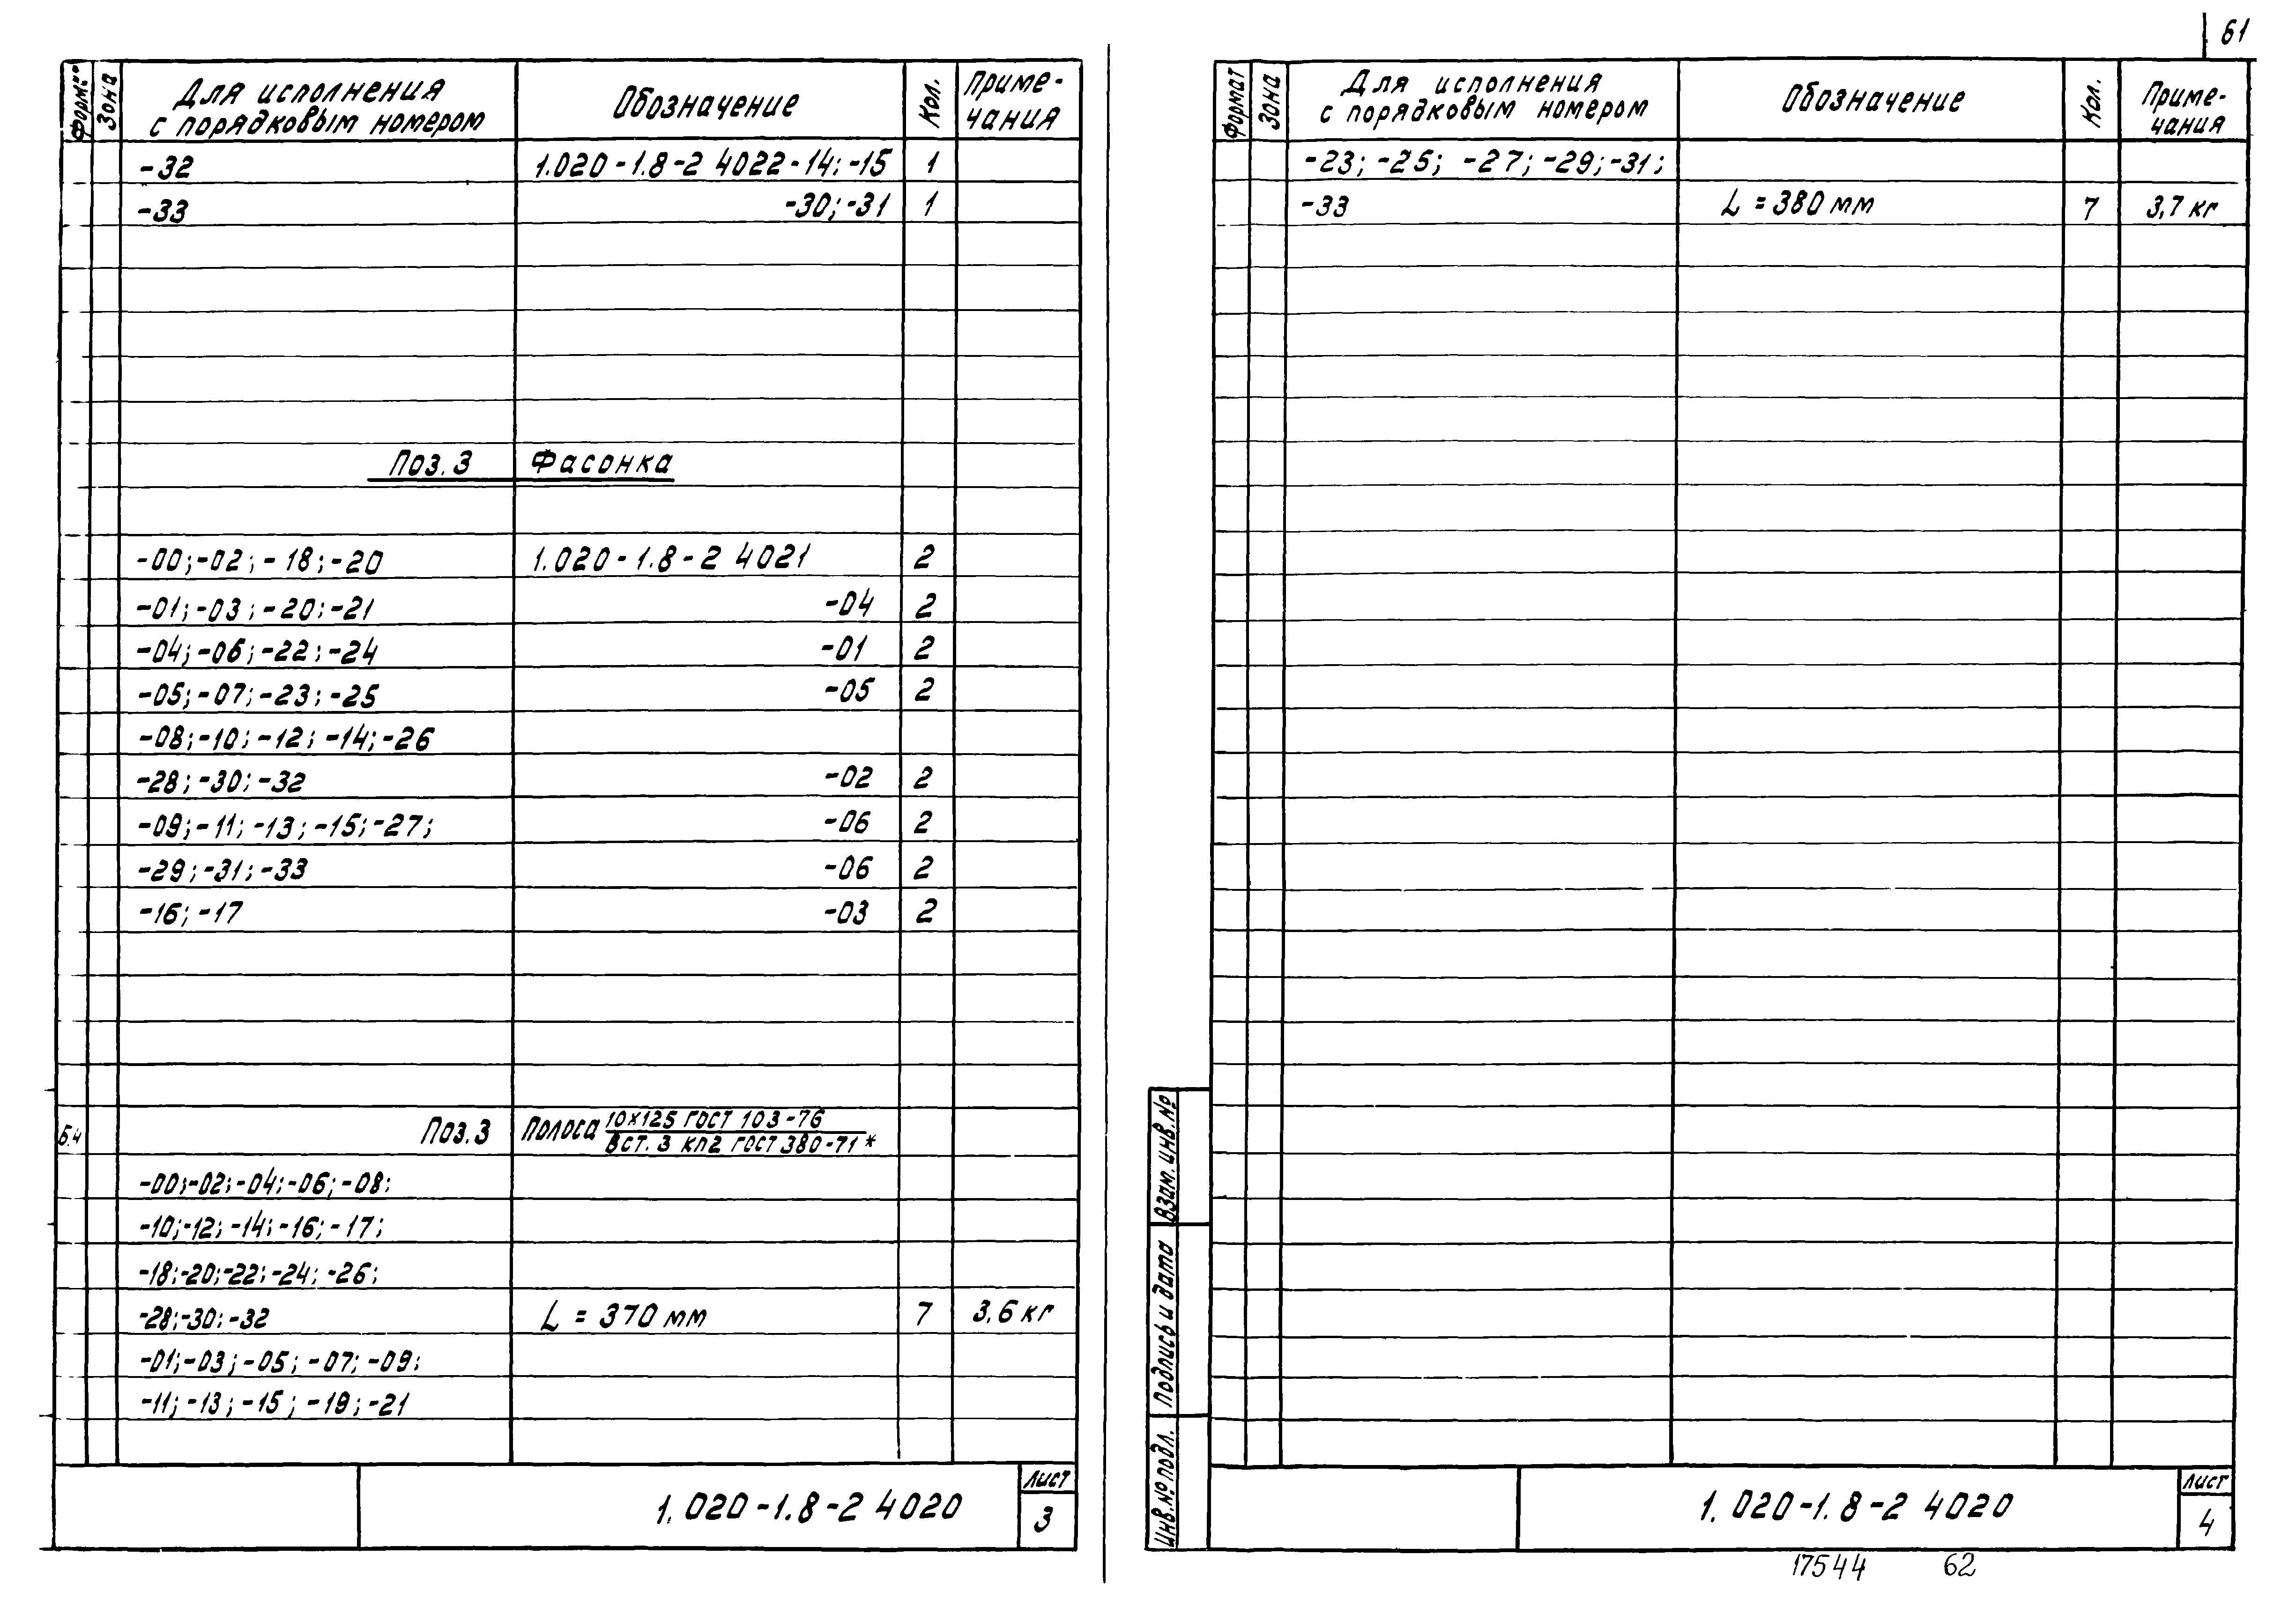 61
Формат Зона Для исполнения с порядковым номером Обозначение Кол. Приме-чания
-32 1.020-1.8-2 4022-14; -15 1
-33 -30; -31 1
Поз. 3 Фасонка
-00; -02; -18; -20 1.020-1.8-2 4021 2
-01; -03; -20; -21 -04 2
-04; -06; -22; -24 -01 2
-05; -07; -23; -25 -05 2
-08; -10; -12; -14; -26
-28; -30; -32 -02 2
-09; -11; -13; -15; -27; -06 2
-29; -31; -33 -06 2
-16; -17 -03 2
Б.4 Поз. 3 Полоса 10х125 ГОСТ 103-76
Вст. 3 кп2 ГОСТ 380-71*
-00; -02; -04; -06; -08;
-10; -12; -14; -16; -17;
-18; -20; -22; -24; -26;
-28; -30; -32 L = 370 мм 7 3,6 кг
-01; -03; -05; -07; -09;
-11; -13; -15; -19; -21
1.020-1.8-2 4020
Лист
3
Формат Зона Для исполнения с порядковым номером Обозначение Кол. Приме-чания
-23; -25; -27; -29; -31;
-33 L = 380 мм 7 3,7 кг
Взам. инв. №
Подпись и дата
Инв. № подл.
1.020-1.8-2 4020
Лист
4
17544 62